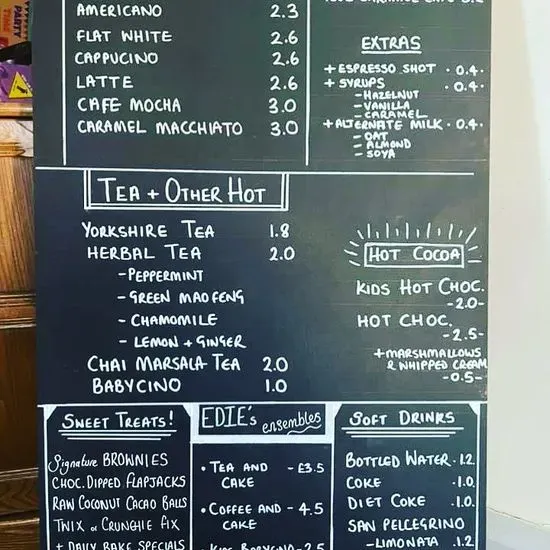 PARTY
AMERICANO 2.3
FLAT WHITE 2.6
CAPPUCINO 2.6
LATTE 2.6
CAFE MOCHA 3.0
CARAMEL MACCHIATO 3.0
EXTRAS
+ ESPRESSO SHOT ·0.4·
+ SYRUPS ·0.4·
- HAZELNUT
- VANILLA
- CARAMEL
+ ALTERNATE MILK ·0.4·
- OAT
- ALMOND
- SOYA
TEA + OTHER HOT
YORKSHIRE TEA 1.8
HERBAL TEA 2.0
- PEPPERMINT
- GREEN MAOFENG
- CHAMOMILE
- LEMON + GINGER
CHAI MARSALA TEA 2.0
BABYCINO 1.0
HOT COCOA
KIDS HOT CHOC.
-2.0-
HOT CHOC.
-2.5-
+ MARSHMALLOWS
& WHIPPED CREAM
-0.5-
SWEET TREATS!
Signature BROWNIES
CHOC. DIPPED FLAPJACKS
RAW COCONUT CACAO BALLS
TWIX or CRUNCHIE FIX
+ DAILY BAKE SPECIALS
EDIE's ensembles
• TEA AND - £3.5
CAKE
• COFFEE AND - 4.5
CAKE
• KIDS BABYCINO - 2.5
SOFT DRINKS
BOTTLED WATER ·1.2
COKE ·1.0
DIET COKE ·1.0
SAN PELLEGRINO
- LIMONATA ·1.2